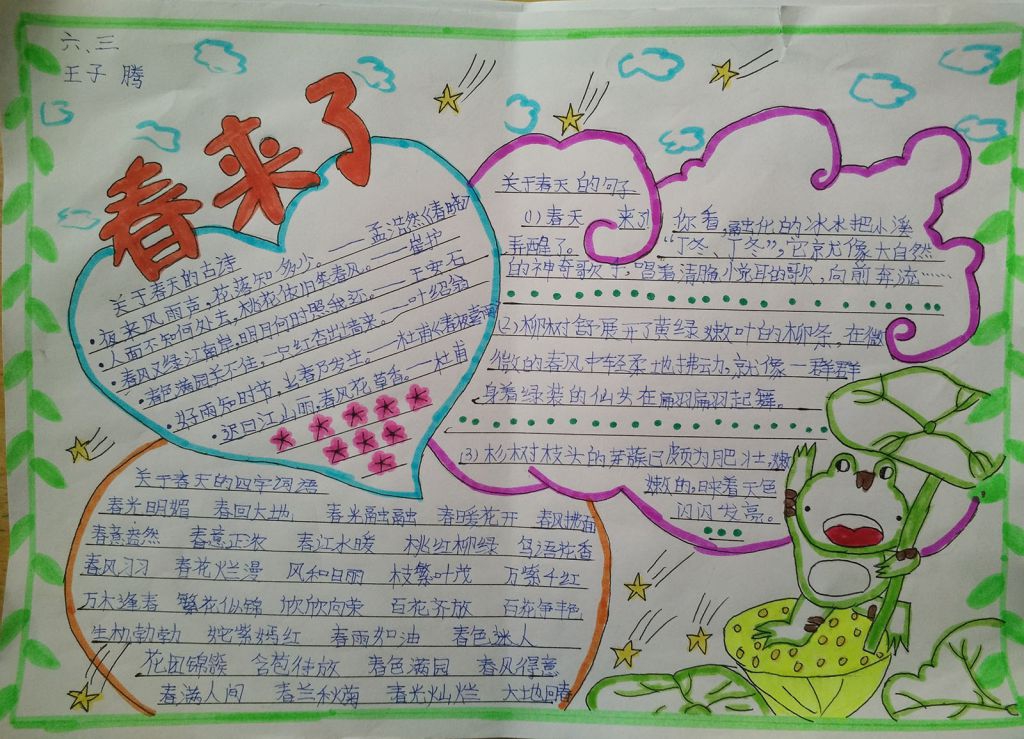 六、三
王子腾
春来了
关于春天的古诗
·夜来风雨声,花落知多少。——孟浩然《春晓》
人面不知何处去,桃花依旧笑春风。——崔护
·春风又绿江南岸,明月何时照我还。——王安石
·春色满园关不住,一只红杏出墙来。——叶绍翁
·好雨知时节,当春乃发生。——杜甫《春夜喜雨》
·迟日江山丽,春风花草香。——杜甫
关于春天的句子
(1)春天 来了 你看,融化的冰水把小溪
弄醒了。“丁冬、丁冬”,它就像大自然
的神奇歌手,唱着清脆小悦耳的歌,向前奔流……
(2)柳树舒展开了黄绿嫩叶的柳条,在微
微的春风中轻柔地拂动,就像一群群
身着绿装的仙女在翩翩起舞。
(3)杉树枝头的芽簇已颇为肥壮,嫩
嫩的,映着天色
闪闪发亮。
关于春天的四字词语
春光明媚 春回大地 春光融融 春暖花开 春风拂面
春意盎然 春意正浓 春江水暖 桃红柳绿 鸟语花香
春风习习 春花烂漫 风和日丽 枝繁叶茂 万紫千红
万木逢春 繁花似锦 欣欣向荣 百花齐放 百花争艳
生机勃勃 姹紫嫣红 春雨如油 春色迷人
花团锦簇 含苞待放 春色满园 春风得意
春满人间 春兰秋菊 春光灿烂 大地回春